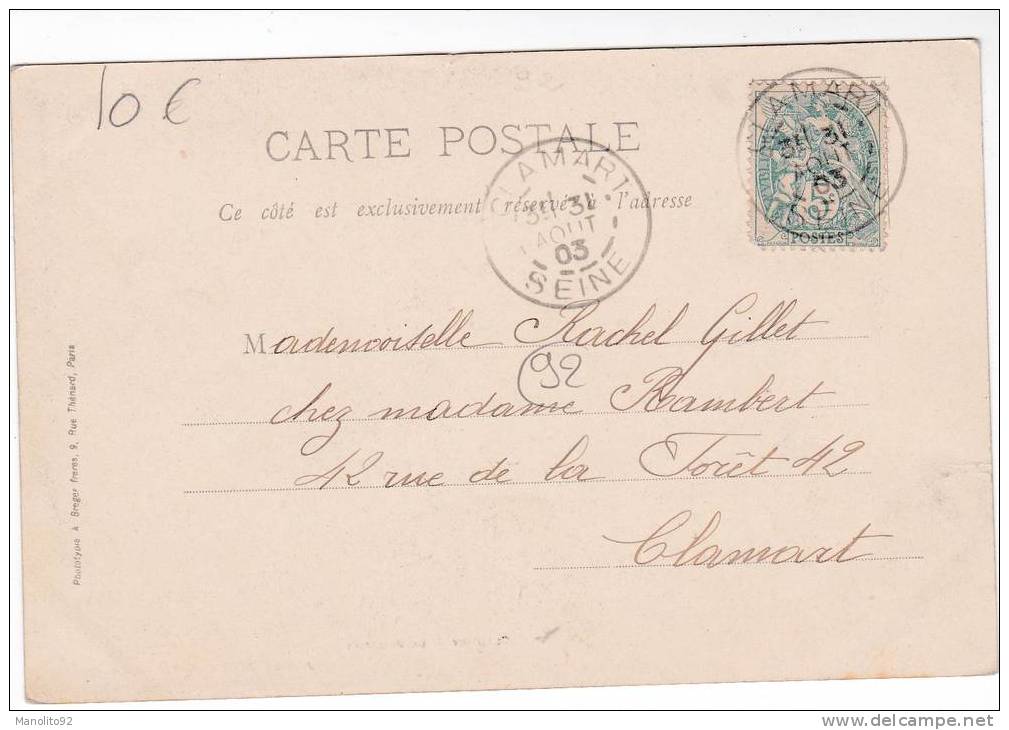 10 €
CARTE POSTALE
Ce côté est exclusivement réservé à l'adresse
CLAMART
31
AOUT
03
SEINE
CLAMART
31
AOUT
03
SEINE
POSTES
Mademoiselle Rachel Gillet
92
chez madame Rambert
42 rue de la Forêt 42
Clamart
Phototypie A Breger frères, 9, Rue Thénard, Paris
Manolito92
www.delcampe.net